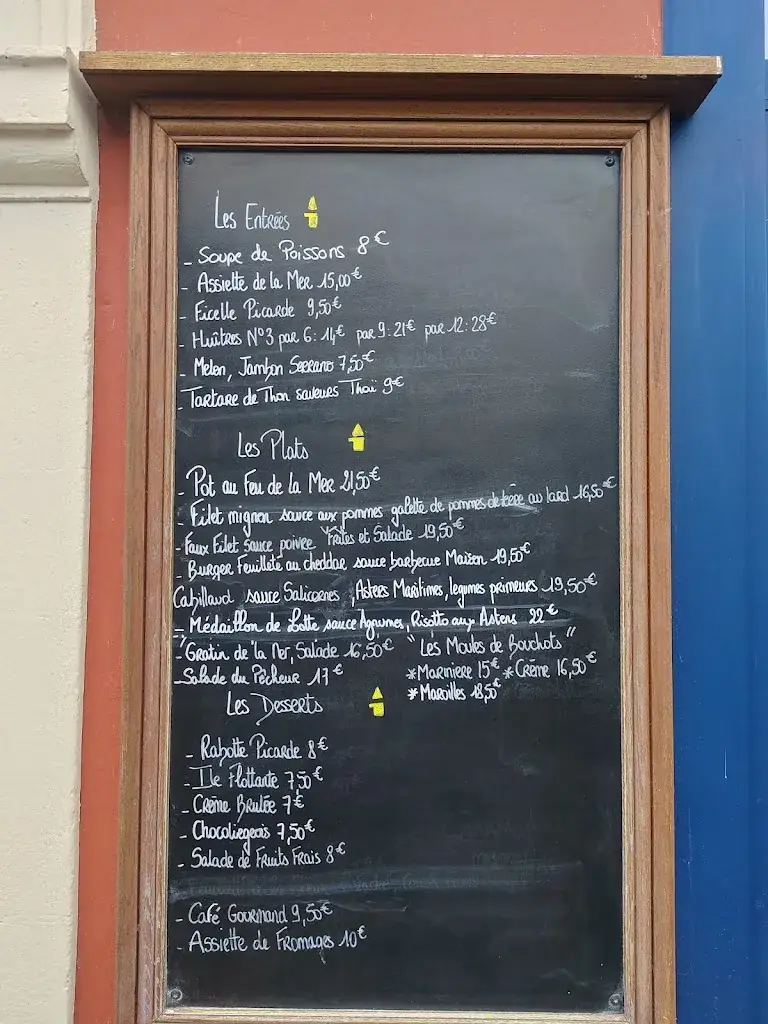 Les Entrées
- Soupe de Poissons 8€
- Assiette de la Mer 15,00€
- Ficelle Picarde 9,50€
- Huîtres N°3 par 6: 14€ par 9: 21€ par 12: 28€
- Melon, Jambon Serrano 7,50€
- Tartare de Thon saveurs Thaï 9€
Les Plats
- Pot au Feu de la Mer 21,50€
- Filet mignon sauce aux pommes galette de pommes de terre au lard 16,50€
- Faux Filet sauce poivre Frites et Salade 19,50€
- Burger Feuilleté au cheddar sauce barbecue Maison 19,50€
Cabillaud sauce Salicornes, Asters Maritimes, legumes primeurs 19,50€
- Médaillon de Lotte sauce Agrumes, Risotto aux Asters 22€
- Gratin de la Mer, Salade 16,50€
- Salade du Pêcheur 17€
"Les Moules de Bouchots"
*Marinière 15€ *Crème 16,50€
*Maroilles 18,50€
Les Desserts
- Rabotte Picarde 8€
- Ile Flottante 7,50€
- Crème Brulée 7€
- Chocoliegeois 7,50€
- Salade de Fruits Frais 8€
- Café Gourmand 9,50€
- Assiette de Fromages 10€